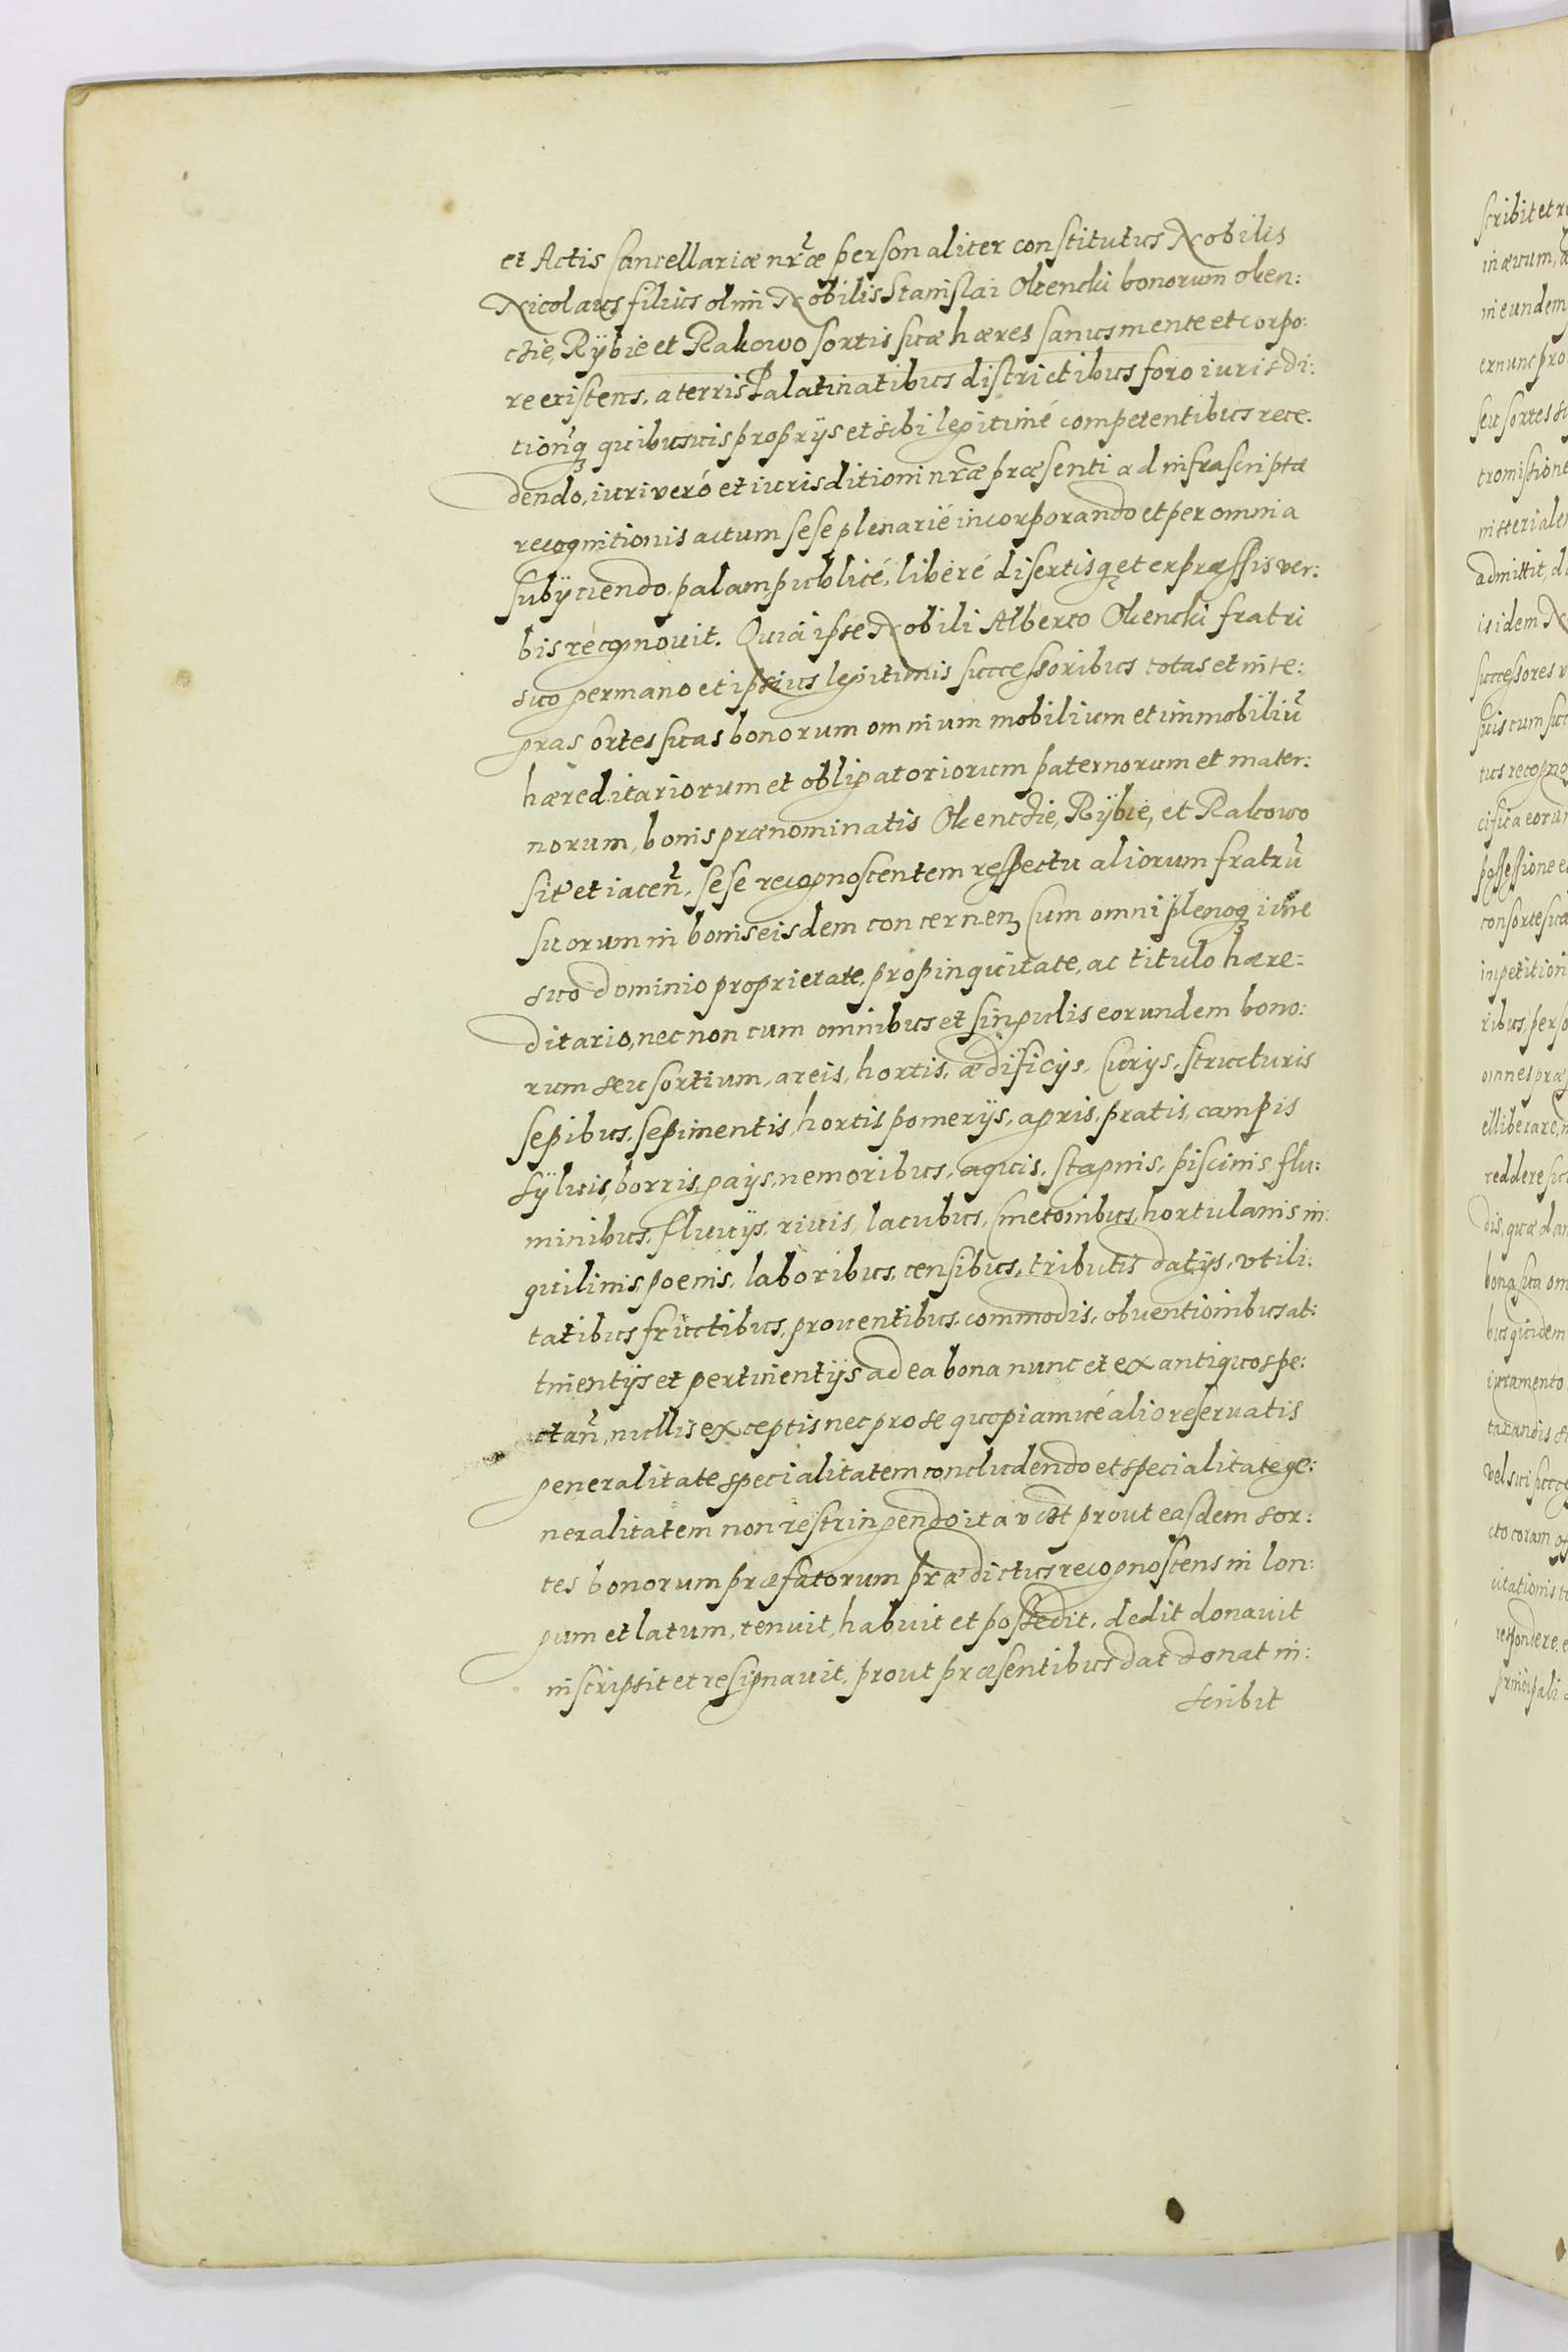 et Actis Cancellariæ nræ personaliter constitutus Nobilis
Nicolaus filius olim Nobilis Stanislai Okencki bonorum Oken:
czie, Rÿbie et Rakowo sortis suæ hæres sanus mente et corpo:
re existens, a terris Palatinatibus districtibus foro iurisdi:
tionq quibusuis proprÿs et sibi legitimé competentibus rece:
dendo, iuri veró et iurisditioni nræ præsenti ad infrascriptæ
recognitionis actum sese plenarié incorporando et per omnia
subÿciendo, palam, publicé, liberé disertisq et expræssis ver:
bis recognouit. Quia ipse Nobili Alberto Okencki fratri
suo germano et ipsius legitimis successoribus totas et inte:
gras sortes suas bonorum omnium mobilium et immobiliũ
hæreditariorum et obligatoriorum paternorum et mater:
norum, bonis prænominatis Okenczie, Rÿbie, et Rakowo
sit et iaceñ, sese recognoscentem respectu aliorum fratrũ
suorum in bonis eisdem concernen, Cum omni plenoq iure
suo dominio proprietate, propinquitate, ac titulo hære:
ditario, nec non cum omnibus et singulis eorundem bono:
rum seu sortium, areis, hortis, ædificÿs, Curÿs, structuris
sepibus, sepimentis, hortis pomerÿs, agris, pratis, campis
sÿluis, borris, gaÿs, nemoribus, aquis, stagnis, piscinis, flu:
minibus, fluuÿs, riuis, lacubus, Cmetonibus, hortulanis in:
quilinis, poenis, laboribus, censibus, tributis datÿs, vtili:
tatibus fructibus, prouentibus, commodis, obuentionibus at:
tinentÿs et pertinentÿs ad ea bona nunc et ex antiquo spe:
ctañ, nullis exceptis nec pro se quopiamué alio reseruatis
generalitate specialitatem concludendo et specialitate ge:
neralitatem non restringendo ita prout easdem sor:
tes bonorum præfatorum prædictus recognoscens in lon:
gum et latum, tenuit, habuit et possedit, dedit donauit
inscripsit et resignauit, prout præsentibus dat donat in:
scribit